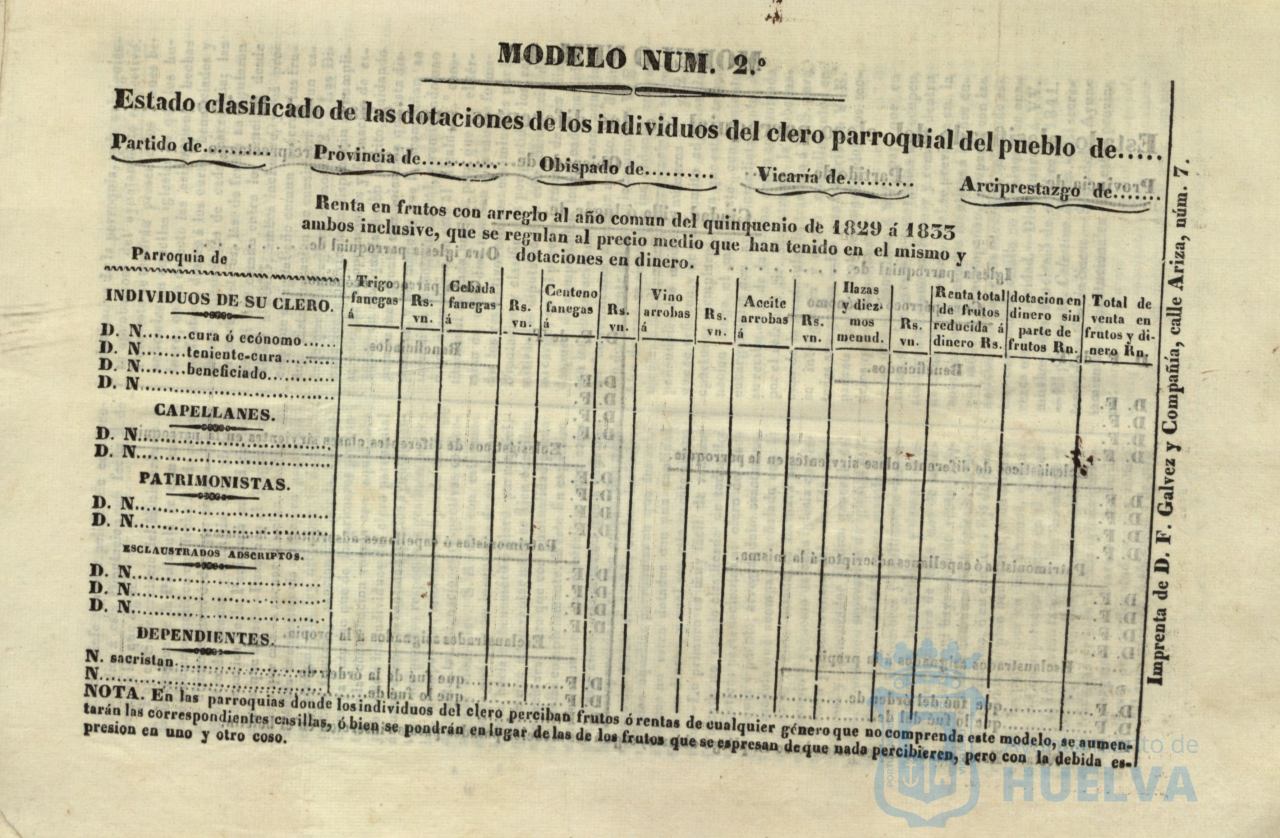 MODELO NUM. 2.º
Estado clasificado de las dotaciones de los individuos del clero parroquial del pueblo de.....
Partido de.......... Provincia de........... Obispado de.......... Vicaría de.......... Arciprestazgo de.......
Renta en frutos con arreglo al año comun del quinquenio de 1829 á 1833
ambos inclusive, que se regulan al precio medio que han tenido en el mismo y
dotaciones en dinero.
Parroquia de
INDIVIDUOS DE SU CLERO.
Trigo
fanegas
á
Rs.
vn.
Cebada
fanegas
á
Rs.
vn.
Centeno
fanegas
á
Rs.
vn.
Vino
arrobas
á
Rs.
vn.
Aceite
arrobas
á
Rs.
vn.
Hazas
y diez-
mos
menud.
Rs.
vn.
Renta total
de frutos
reducida á
dinero Rs.
dotacion en
dinero sin
parte de
frutos Rn.
Total de
venta en
frutos y di-
nero Rn.
D. N........cura ó ecónomo......
D. N........teniente-cura ........
D. N........beneficiado...........
D. N...............................
CAPELLANES.
D. N...............................
D. N...............................
PATRIMONISTAS.
D. N...............................
D. N...............................
ESCLAUSTRADOS ADSCRIPTOS.
D. N...............................
D. N...............................
D. N...............................
DEPENDIENTES.
N. sacristan.........................
N.....................................
NOTA. En las parroquias donde los individuos del clero perciban frutos ó rentas de cualquier género que no comprenda este modelo, se aumen-
tarán las correspondientes casillas, ó bien se pondrán en lugar de las de los frutos que se espresan de que nada percibieren, pero con la debida es-
presion en uno y otro coso.
Imprenta de D. F. Galvez y Compañía, calle Ariza, núm. 7.
HUELVA